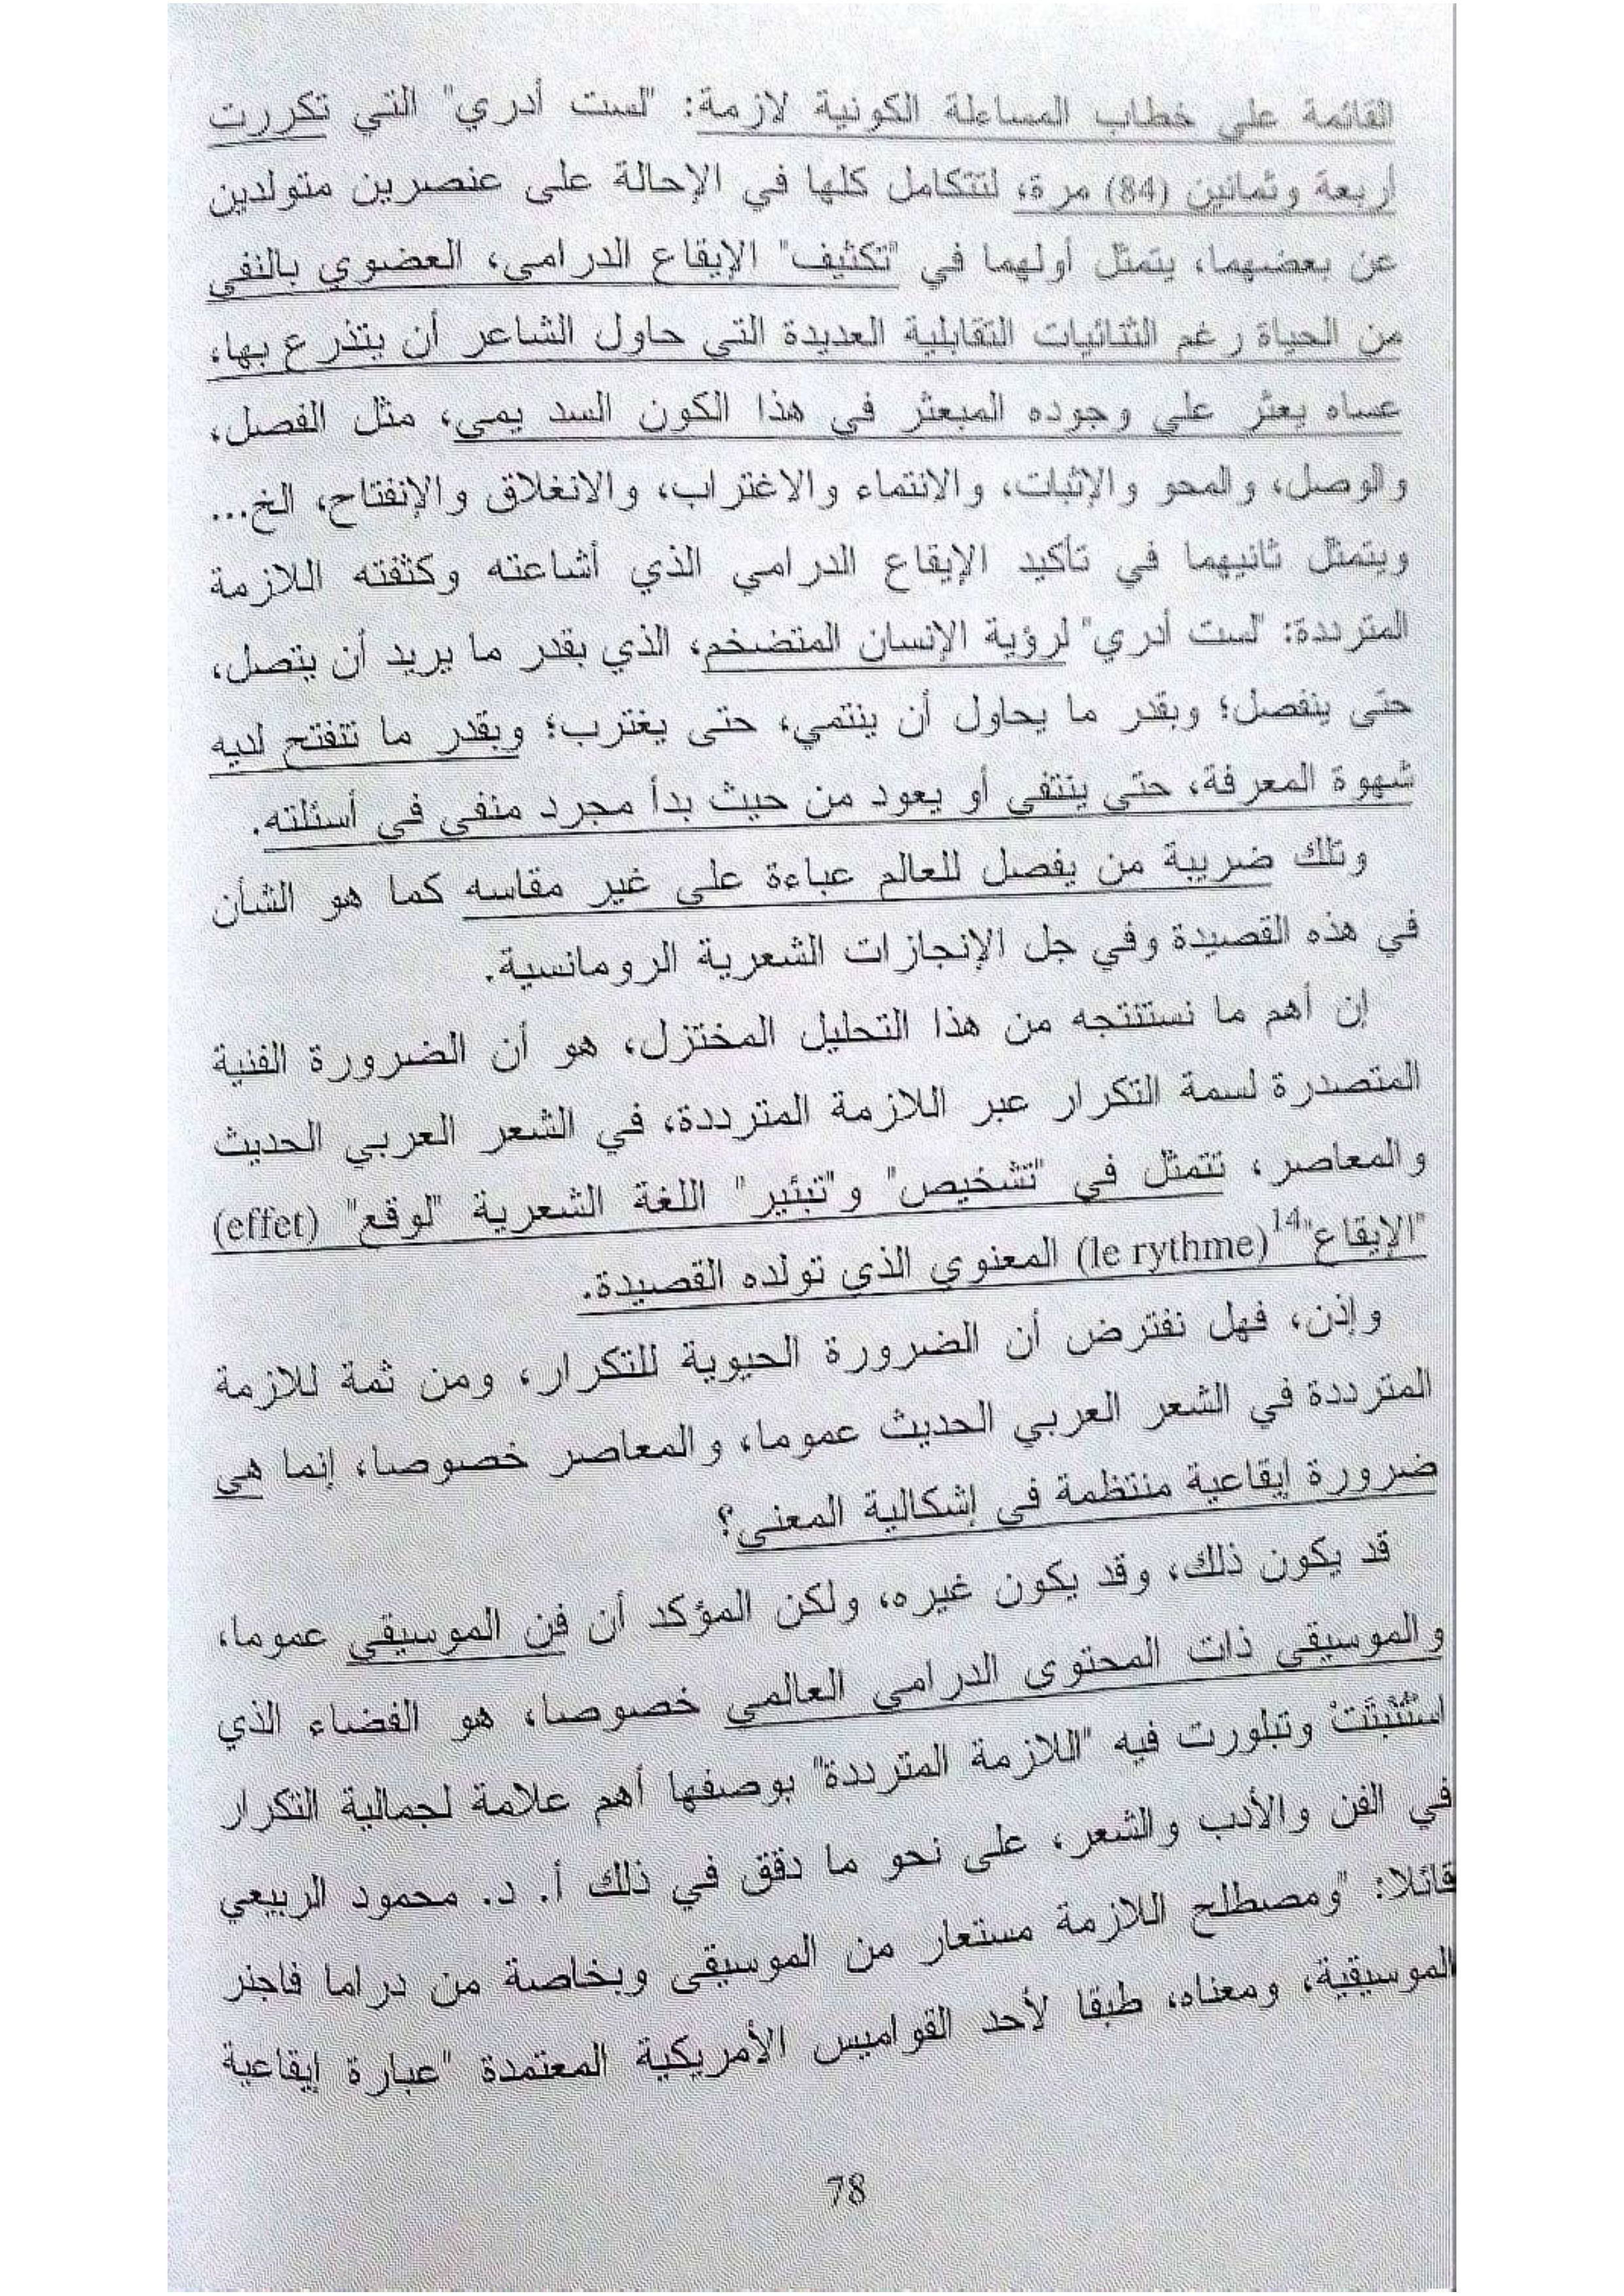 القائمة على خطاب المساءلة الكونية لازمة: "لست أدري" التي تكررت
أربعة وثمانين (84) مرة، لتتكامل كلها في الإحالة على عنصرين متولدين
عن بعضهما، يتمثل أولهما في "تكثيف" الإيقاع الدرامي، العضوي بالنفي
من الحياة رغم الثنائيات التقابلية العديدة التي حاول الشاعر أن يتذرع بها،
عساه يعثر على وجوده المبعثر في هذا الكون السد يمي، مثل الفصل،
والوصل، والمحو والإثبات، والانتماء والاغتراب، والانغلاق والإنفتاح، الخ...
ويتمثل ثانيهما في تأكيد الإيقاع الدرامي الذي أشاعته وكثفته اللازمة
المترددة: "لست أدري" لرؤية الإنسان المتضخم، الذي بقدر ما يريد أن يتصل،
حتى ينفصل؛ وبقدر ما يحاول أن ينتمي، حتى يغترب؛ وبقدر ما تتفتح لديه
شهوة المعرفة، حتى ينتفي أو يعود من حيث بدأ مجرد منفى في أسئلته.
وتلك ضريبة من يفصل للعالم عباءة على غير مقاسه كما هو الشأن
في هذه القصيدة وفي جل الإنجازات الشعرية الرومانسية.
إن أهم ما نستنتجه من هذا التحليل المختزل، هو أن الضرورة الفنية
المتصدرة لسمة التكرار عبر اللازمة المترددة، في الشعر العربي الحديث
والمعاصر، تتمثل في "تشخيص" و"تبئير" اللغة الشعرية "لوقع" (effet)
"الإيقاع"14 (le rythme) المعنوي الذي تولده القصيدة.
وإذن، فهل نفترض أن الضرورة الحيوية للتكرار، ومن ثمة للازمة
المترددة في الشعر العربي الحديث عموما، والمعاصر خصوصا، إنما هي
ضرورة إيقاعية منتظمة في إشكالية المعنى؟
قد يكون ذلك، وقد يكون غيره، ولكن المؤكد أن فن الموسيقى عموما،
والموسيقى ذات المحتوى الدرامي العالمي خصوصا، هو الفضاء الذي
استُنْبِتَتْ وتبلورت فيه "اللازمة المترددة" بوصفها أهم علامة لجمالية التكرار
في الفن والأدب والشعر، على نحو ما دقق في ذلك أ. د. محمود الربيعي
قائلا: "ومصطلح اللازمة مستعار من الموسيقى وبخاصة من دراما فاجنر
الموسيقية، ومعناه، طبقا لأحد القواميس الأمريكية المعتمدة "عبارة إيقاعية
78